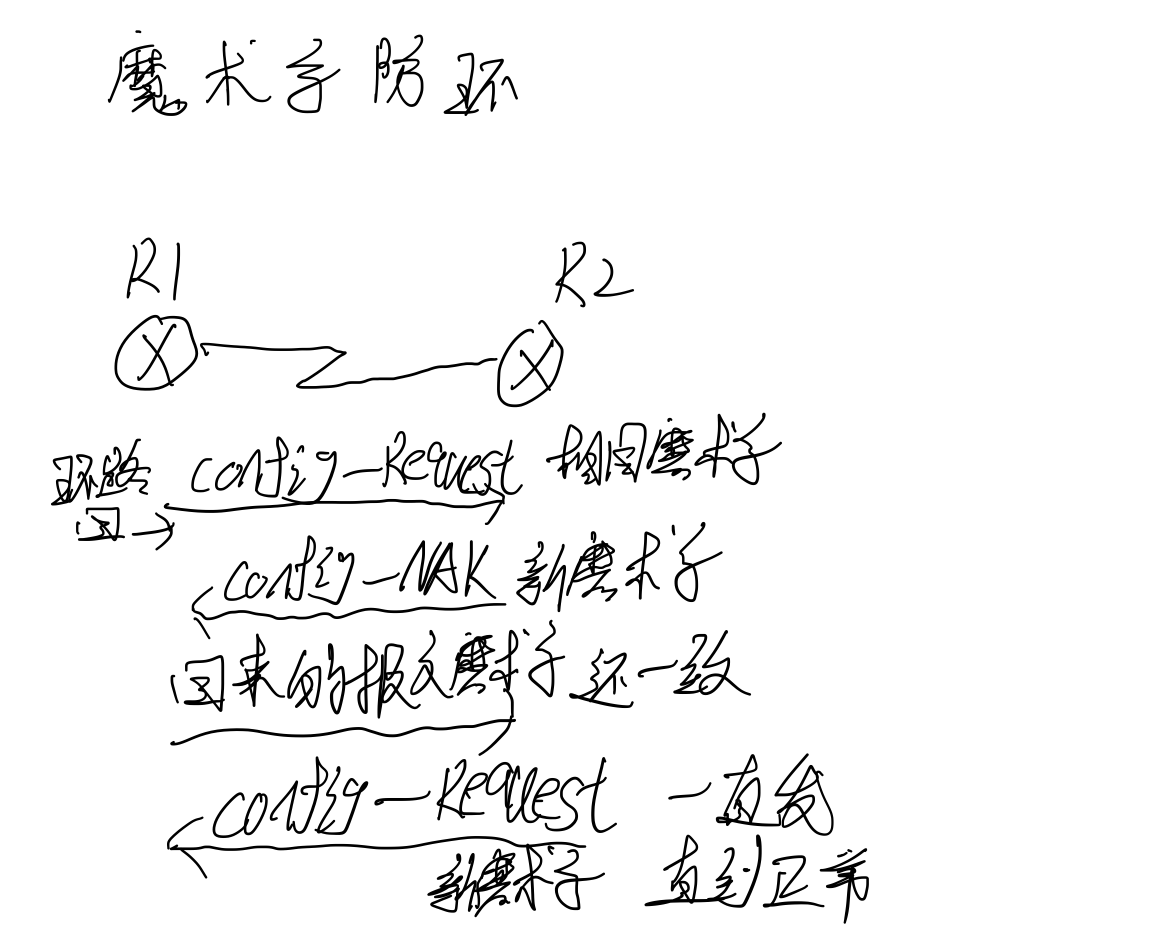 魔术字防环
R1
R2
环路回→ config-Request 相同魔术字
config-NAK 新魔术字
回来的报文魔术字还一致
config-Request 一直发
新魔术字 直到正常